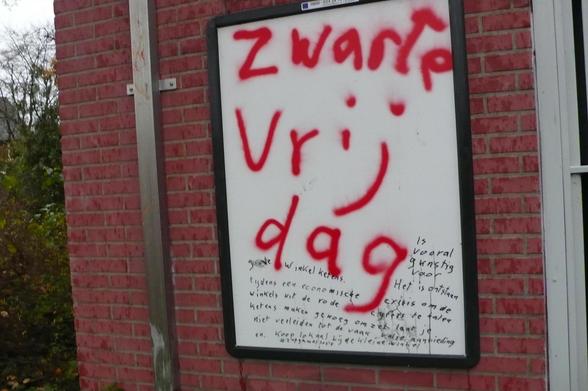 zwarte
Vrij
dag
Is
vooral
gunstig
voor
grote winkelketens. Het is ontstaan
tijdens een economische crisis om de
winkels uit de rode cijfers te halen
ketens maken genoeg omzet laat je
niet verleiden tot de vaak valse aanbieding
en. Koop lokaal bij de kleine winkel